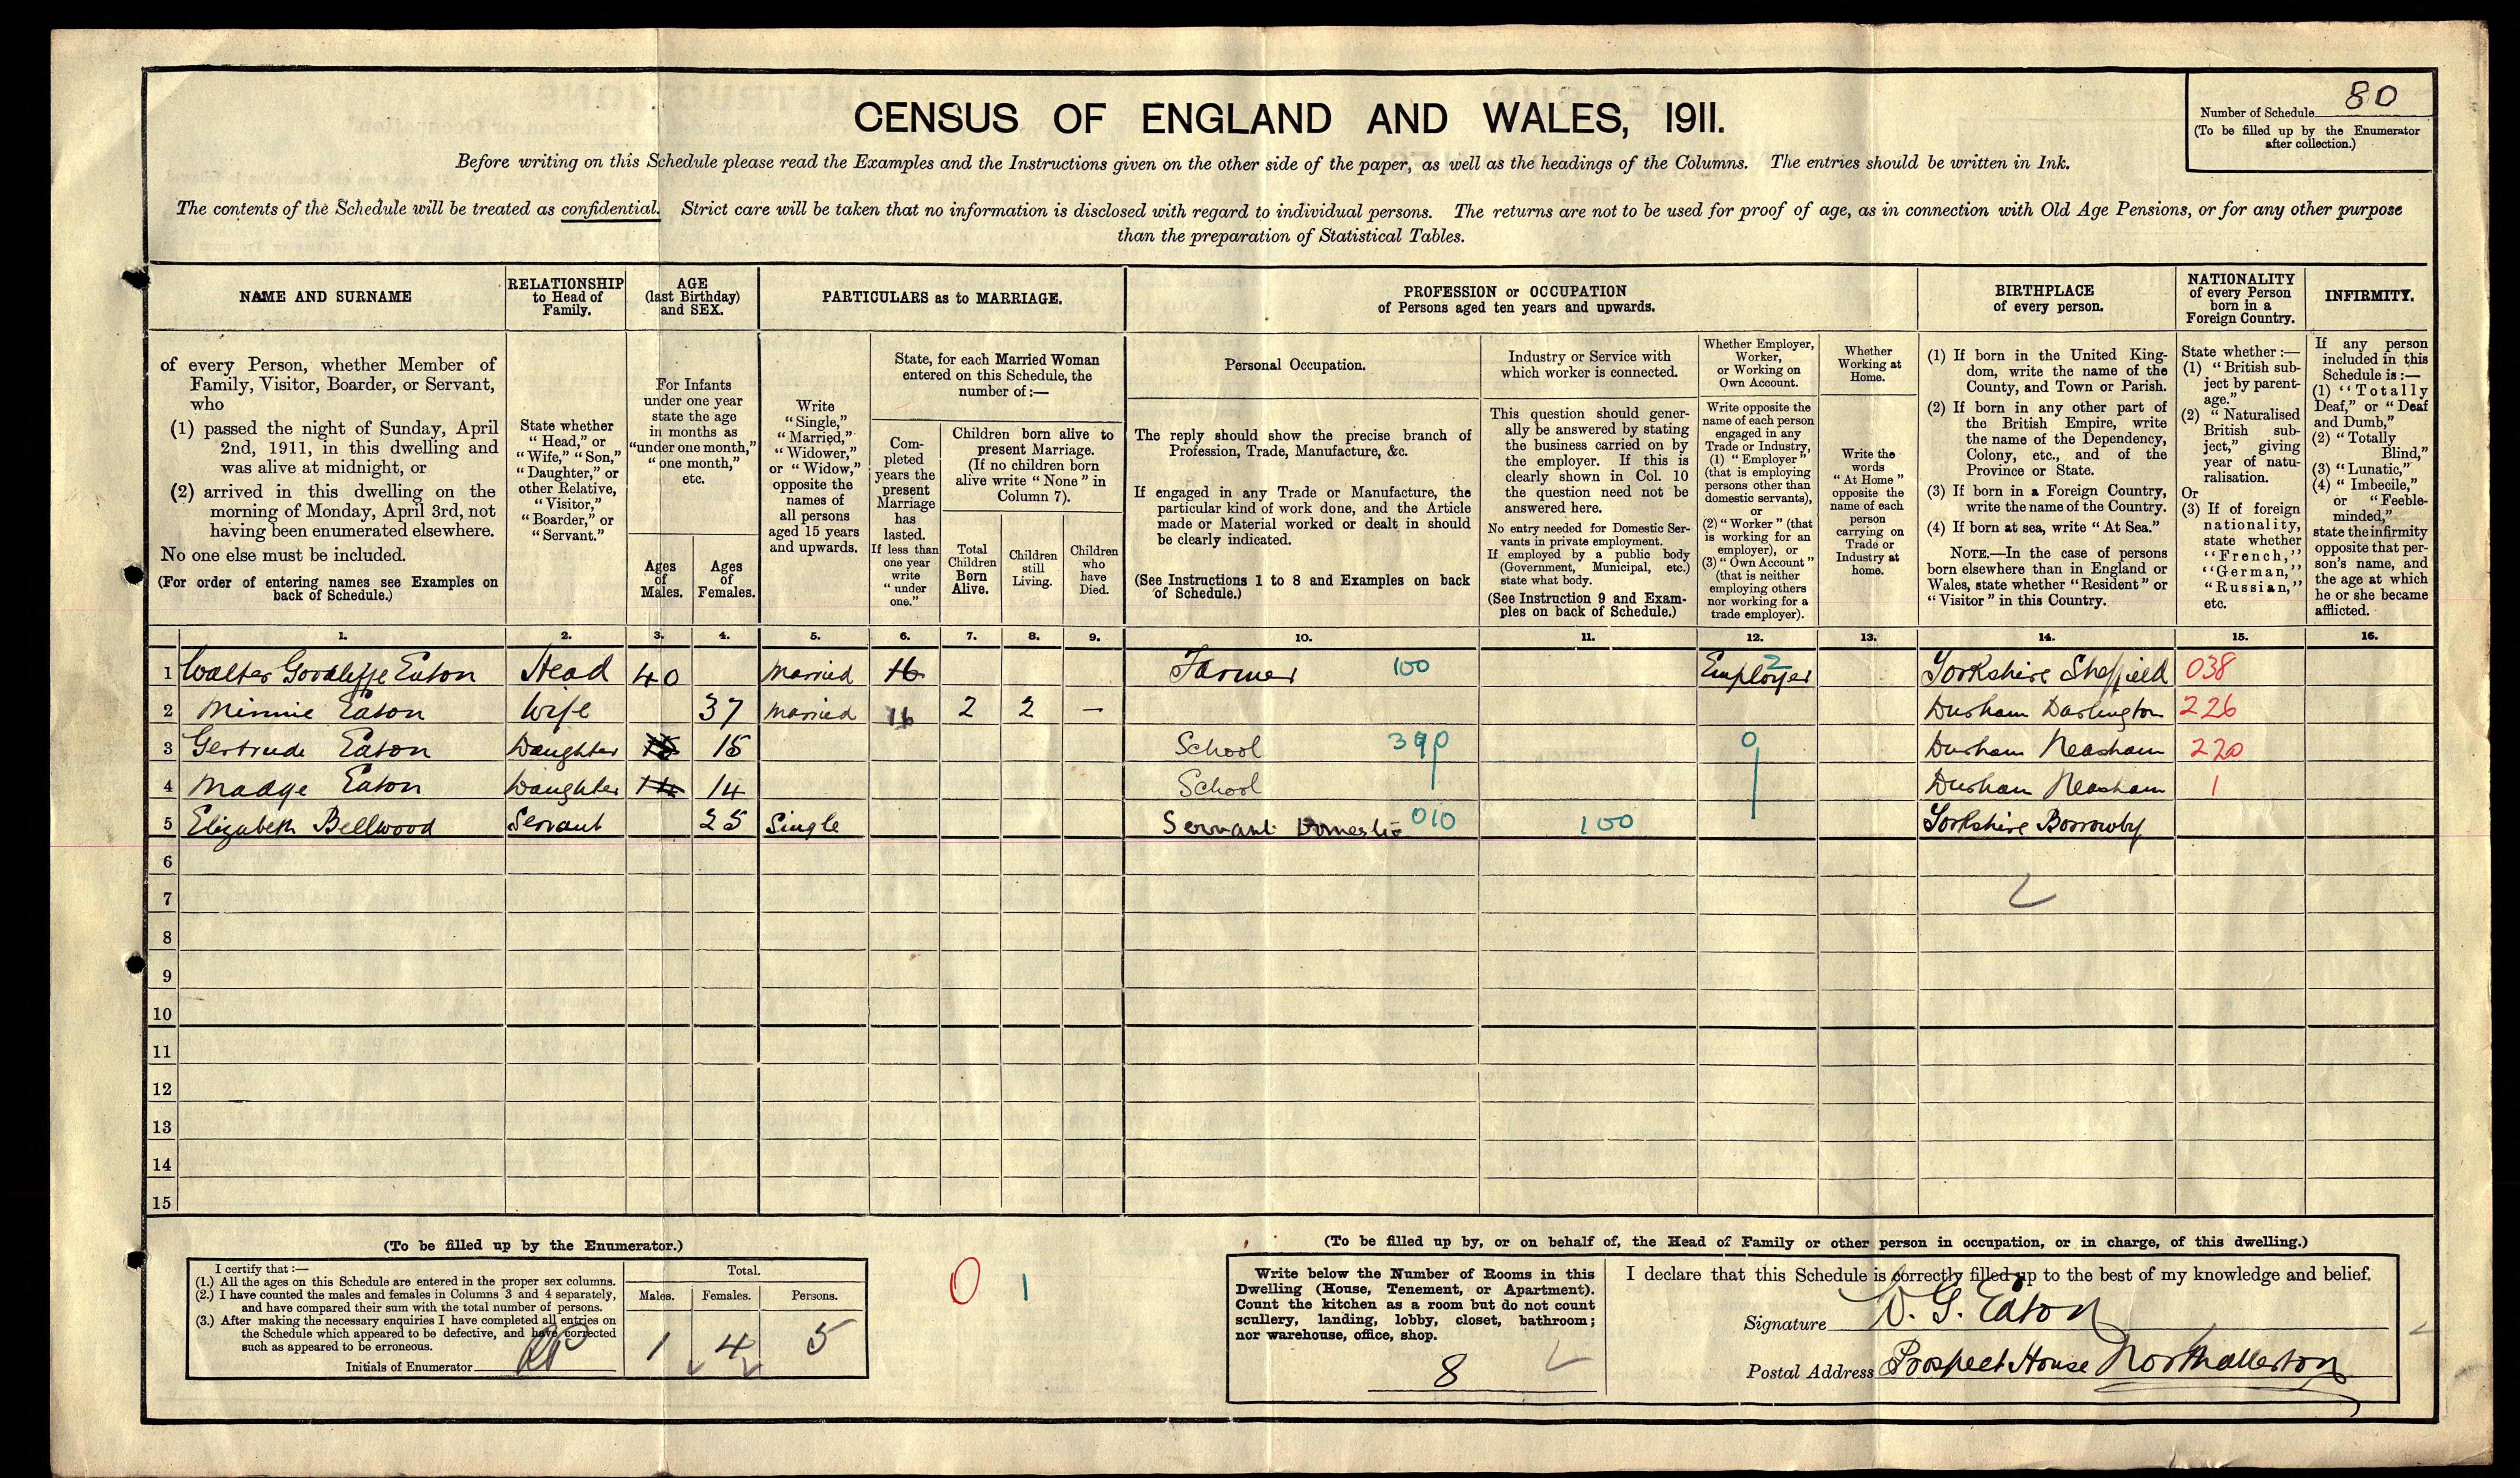 CENSUS OF ENGLAND AND WALES, 1911.
Number of Schedule 80
(To be filled up by the Enumerator
after collection.)
Before writing on this Schedule please read the Examples and the Instructions given on the other side of the paper, as well as the headings of the Columns. The entries should be written in Ink.
The contents of the Schedule will be treated as confidential. Strict care will be taken that no information is disclosed with regard to individual persons. The returns are not to be used for proof of age, as in connection with Old Age Pensions, or for any other purpose
than the preparation of Statistical Tables.
NAME AND SURNAME
of every Person, whether Member of
Family, Visitor, Boarder, or Servant,
who
(1) passed the night of Sunday, April
2nd, 1911, in this dwelling and
was alive at midnight, or
(2) arrived in this dwelling on the
morning of Monday, April 3rd, not
having been enumerated elsewhere.
No one else must be included.
(For order of entering names see Examples on
back of Schedule.)
RELATIONSHIP
to Head of
Family.
State whether
"Head," or
"Wife," "Son,"
"Daughter," or
other Relative,
"Visitor,"
"Boarder," or
"Servant."
AGE
(last Birthday)
and SEX.
For Infants
under one year
state the age
in months as
"under one month,"
"one month,"
etc.
Ages
of
Males.
Ages
of
Females.
PARTICULARS as to MARRIAGE.
Write
"Single,"
"Married,"
"Widower,"
or "Widow,"
opposite the
names of
all persons
aged 15 years
and upwards.
State, for each Married Woman
entered on this Schedule, the
number of:—
Com-
pleted
years the
present
Marriage
has
lasted.
If less than
one year
write
"under
one."
Children born alive to
present Marriage.
(If no children born
alive write "None" in
Column 7).
Total
Children
Born
Alive.
Children
still
Living.
Children
who
have
Died.
PROFESSION or OCCUPATION
of Persons aged ten years and upwards.
Personal Occupation.
The reply should show the precise branch of
Profession, Trade, Manufacture, &c.
If engaged in any Trade or Manufacture, the
particular kind of work done, and the Article
made or Material worked or dealt in should
be clearly indicated.
(See Instructions 1 to 8 and Examples on back
of Schedule.)
Industry or Service with
which worker is connected.
This question should gener-
ally be answered by stating
the business carried on by
the employer. If this is
clearly shown in Col. 10
the question need not be
answered here.
No entry needed for Domestic Ser-
vants in private employment.
If employed by a public body
(Government, Municipal, etc.)
state what body.
(See Instruction 9 and Exam-
ples on back of Schedule.)
Whether Employer,
Worker,
or Working on
Own Account.
Write opposite the
name of each person
engaged in any
Trade or Industry,
(1) "Employer"
(that is employing
persons other than
domestic servants),
or
(2) "Worker" (that
is working for an
employer), or
(3) "Own Account"
(that is neither
employing others
nor working for a
trade employer).
Whether
Working at
Home.
Write the
words
"At Home"
opposite the
name of each
person
carrying on
Trade or
Industry at
home.
BIRTHPLACE
of every person.
(1) If born in the United King-
dom, write the name of the
County, and Town or Parish.
(2) If born in any other part of
the British Empire, write
the name of the Dependency,
Colony, etc., and of the
Province or State.
(3) If born in a Foreign Country,
write the name of the Country.
(4) If born at sea, write "At Sea."
NOTE.—In the case of persons
born elsewhere than in England or
Wales, state whether "Resident" or
"Visitor" in this Country.
NATIONALITY
of every Person
born in a
Foreign Country.
State whether:—
(1) "British sub-
ject by parent-
age."
(2) "Naturalised
British sub-
ject," giving
year of natu-
ralisation.
Or
(3) If of foreign
nationality,
state whether
"French,"
"German,"
"Russian,"
etc.
INFIRMITY.
If any person
included in this
Schedule is:—
(1) "Totally
Deaf," or "Deaf
and Dumb,"
(2) "Totally
Blind,"
(3) "Lunatic,"
(4) "Imbecile,"
or "Feeble-
minded,"
state the infirmity
opposite that per-
son's name, and
the age at which
he or she became
afflicted.
1. 2. 3. 4. 5. 6. 7. 8. 9. 10. 11. 12. 13. 14. 15. 16.
1 Walter Goodliffe Eaton Head 40 Married 16 Farmer 100 Employer 2 Yorkshire Sheffield 038
2 Minnie Eaton Wife 37 Married 16 2 2 — Durham Darlington 226
3 Gertrude Eaton Daughter 15 15 School 390 0 Durham Neasham 220
4 Madge Eaton Daughter 14 14 School Durham Neasham 1
5 Elizabeth Bellwood Servant 25 Single Servant Domestic 010 100 Yorkshire Borrowby
6
7
8
9
10
11
12
13
14
15
(To be filled up by the Enumerator.)
I certify that:—
(1.) All the ages on this Schedule are entered in the proper sex columns.
(2.) I have counted the males and females in Columns 3 and 4 separately,
and have compared their sum with the total number of persons.
(3.) After making the necessary enquiries I have completed all entries on
the Schedule which appeared to be defective, and have corrected
such as appeared to be erroneous.
Initials of Enumerator
Total.
Males. Females. Persons.
1 4 5
0 1
(To be filled up by, or on behalf of, the Head of Family or other person in occupation, or in charge, of this dwelling.)
Write below the Number of Rooms in this
Dwelling (House, Tenement, or Apartment).
Count the kitchen as a room but do not count
scullery, landing, lobby, closet, bathroom;
nor warehouse, office, shop.
8
I declare that this Schedule is correctly filled up to the best of my knowledge and belief.
Signature W. G. Eaton
Postal Address Prospect House Northallerton